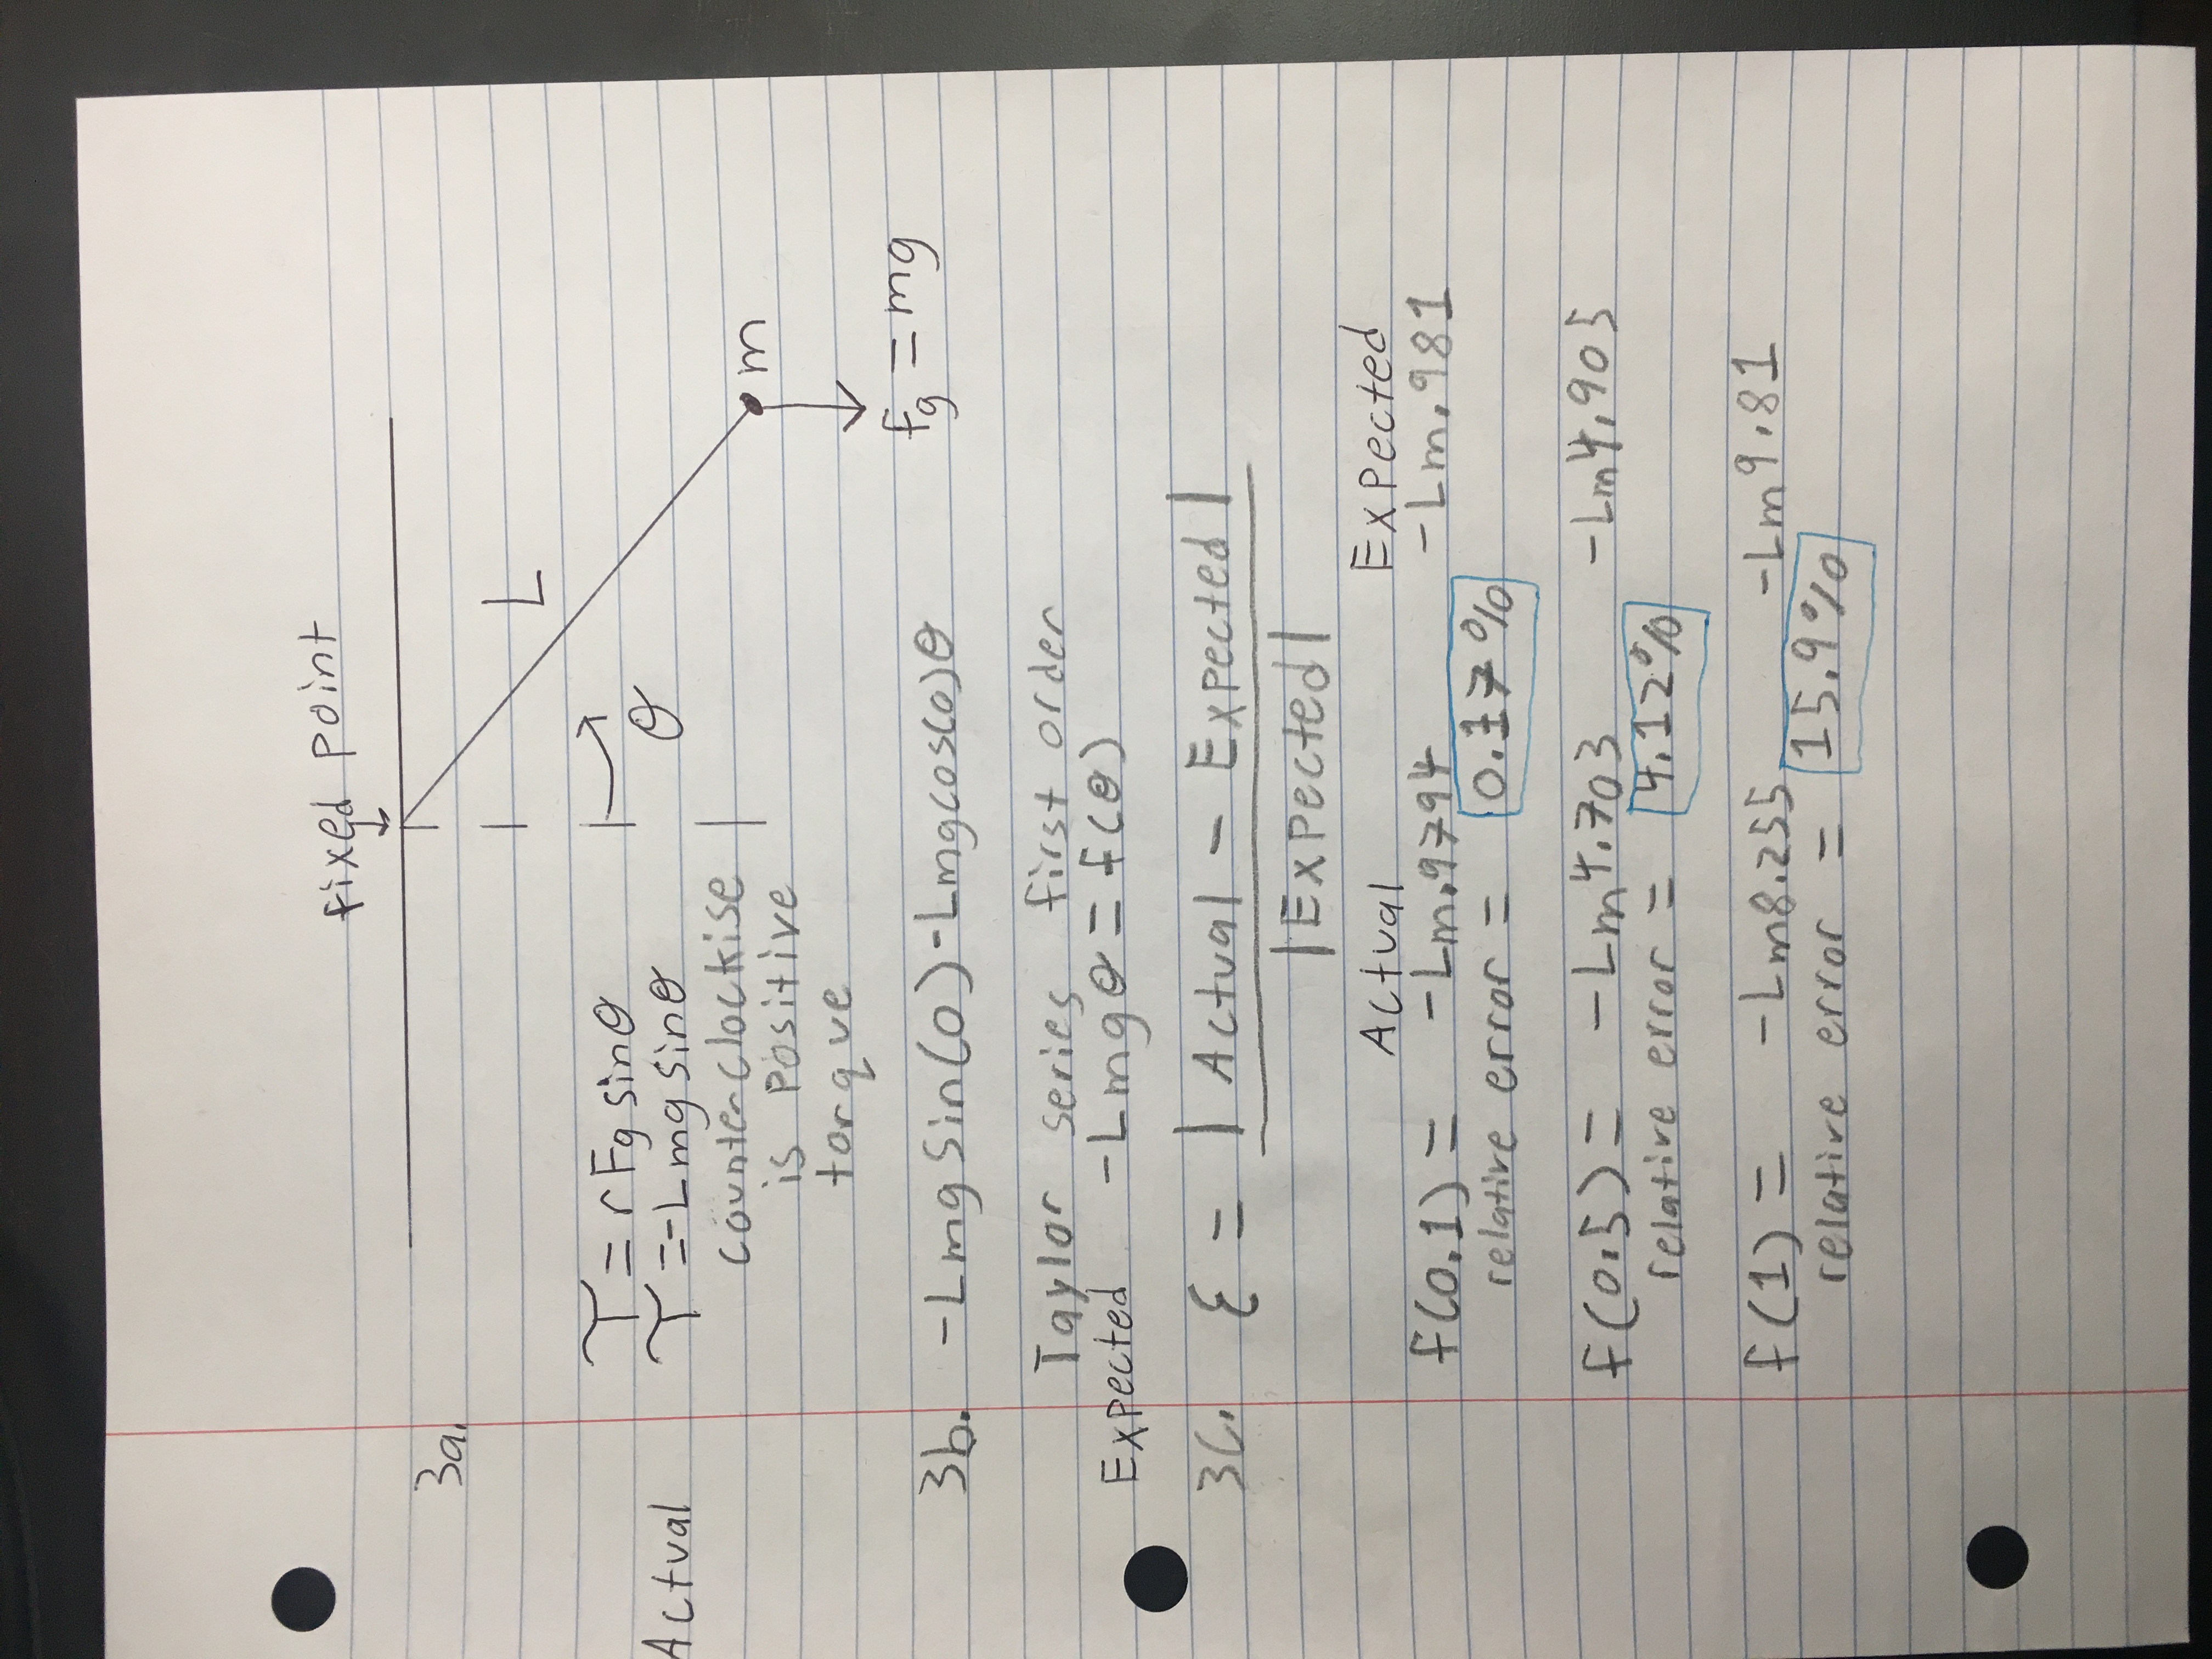 fixed point
↓
3a.
L
τ = r Fg sinθ
θ
Actual τ = -Lmg sinθ
counterclockise
is positive
torque
m
fg = mg
3b. -Lmg sin(0) - Lmg cos(0)θ
Taylor series first order
Expected -Lmgθ = f(θ)
3c. ε = | Actual - Expected |
|Expected|
Actual Expected
f(0.1) = -Lm.9794 -Lm.981
relative error = 0.17%
f(0.5) = -Lm4.703 -Lm4.905
relative error = 4.12%
f(1) = -Lm8.255 -Lm9.81
relative error = 15.9%